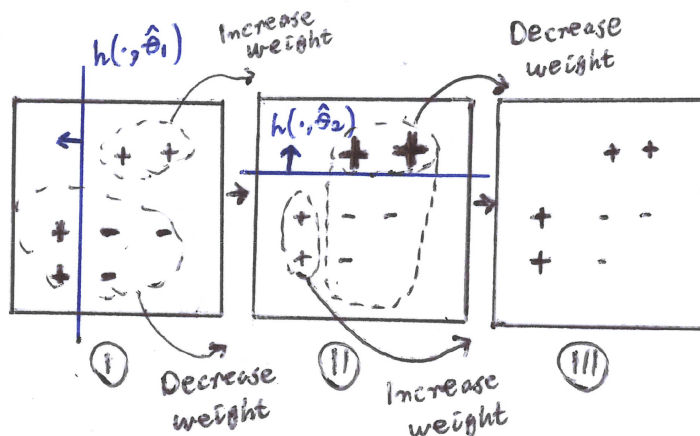 h(·, θ̂₁)
Increase
weight
Decrease
weight
h(·, θ̂₂)
+ +
+ - -
+ -
+ +
+ - -
+ -
+ +
+ - -
+ -
I
II
III
Decrease
weight
Increase
weight